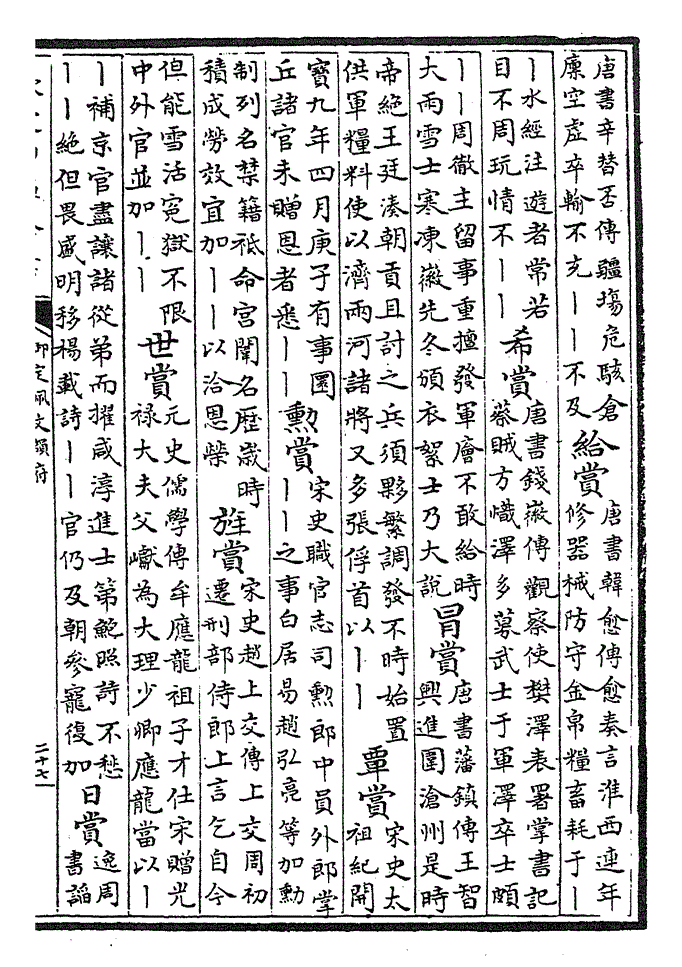 唐書辛替否傳疆場危駭倉
廩空虛卒輸不充丨丨不及
給賞
唐書韓愈傳愈奏言淮西連年
修器械防守金帛糧畜耗于丨
丨水經注遊者常若
目不周玩情不丨丨
希賞
唐書錢徽傳觀察使樊澤表署掌書記
蔡賊方熾澤多募武士于軍澤卒士頗
丨丨周徹主留事重擅發軍廥不敢給時
大雨雪士寒凍徽先冬頒衣絮士乃大說
冒賞
唐書藩鎮傳王智
興進圍滄州是時
帝絕王廷湊朝貢且討之兵須夥繁調發不時始置
供軍糧料使以濟兩河諸將又多張俘首以丨丨
覃賞
宋史太
祖紀開
寶九年四月庚子有事圜
丘諸官未贈恩者悉丨丨
勲賞
宋史職官志司勲郎中員外郎掌
丨丨之事白居易趙弘亮等加勲
制列名禁籍祗命宮闈名歷歲時
積成勞效宜加丨丨以洽恩榮
旌賞
宋史趙上交傳上交周初
遷刑部侍郎上言乞自今
但能雪活寃獄不限
中外官並加丨丨
世賞
元史儒學傳牟應龍祖子才仕宋贈光
祿大夫父巘為大理少卿應龍當以丨
丨補京官盡讓諸從弟而擢咸淳進士第鮑照詩不愁
丨丨絕但畏盛明移楊載詩丨丨官仍及朝參寵復加
日賞
逸周
書謟
御定佩文韻府
二十七